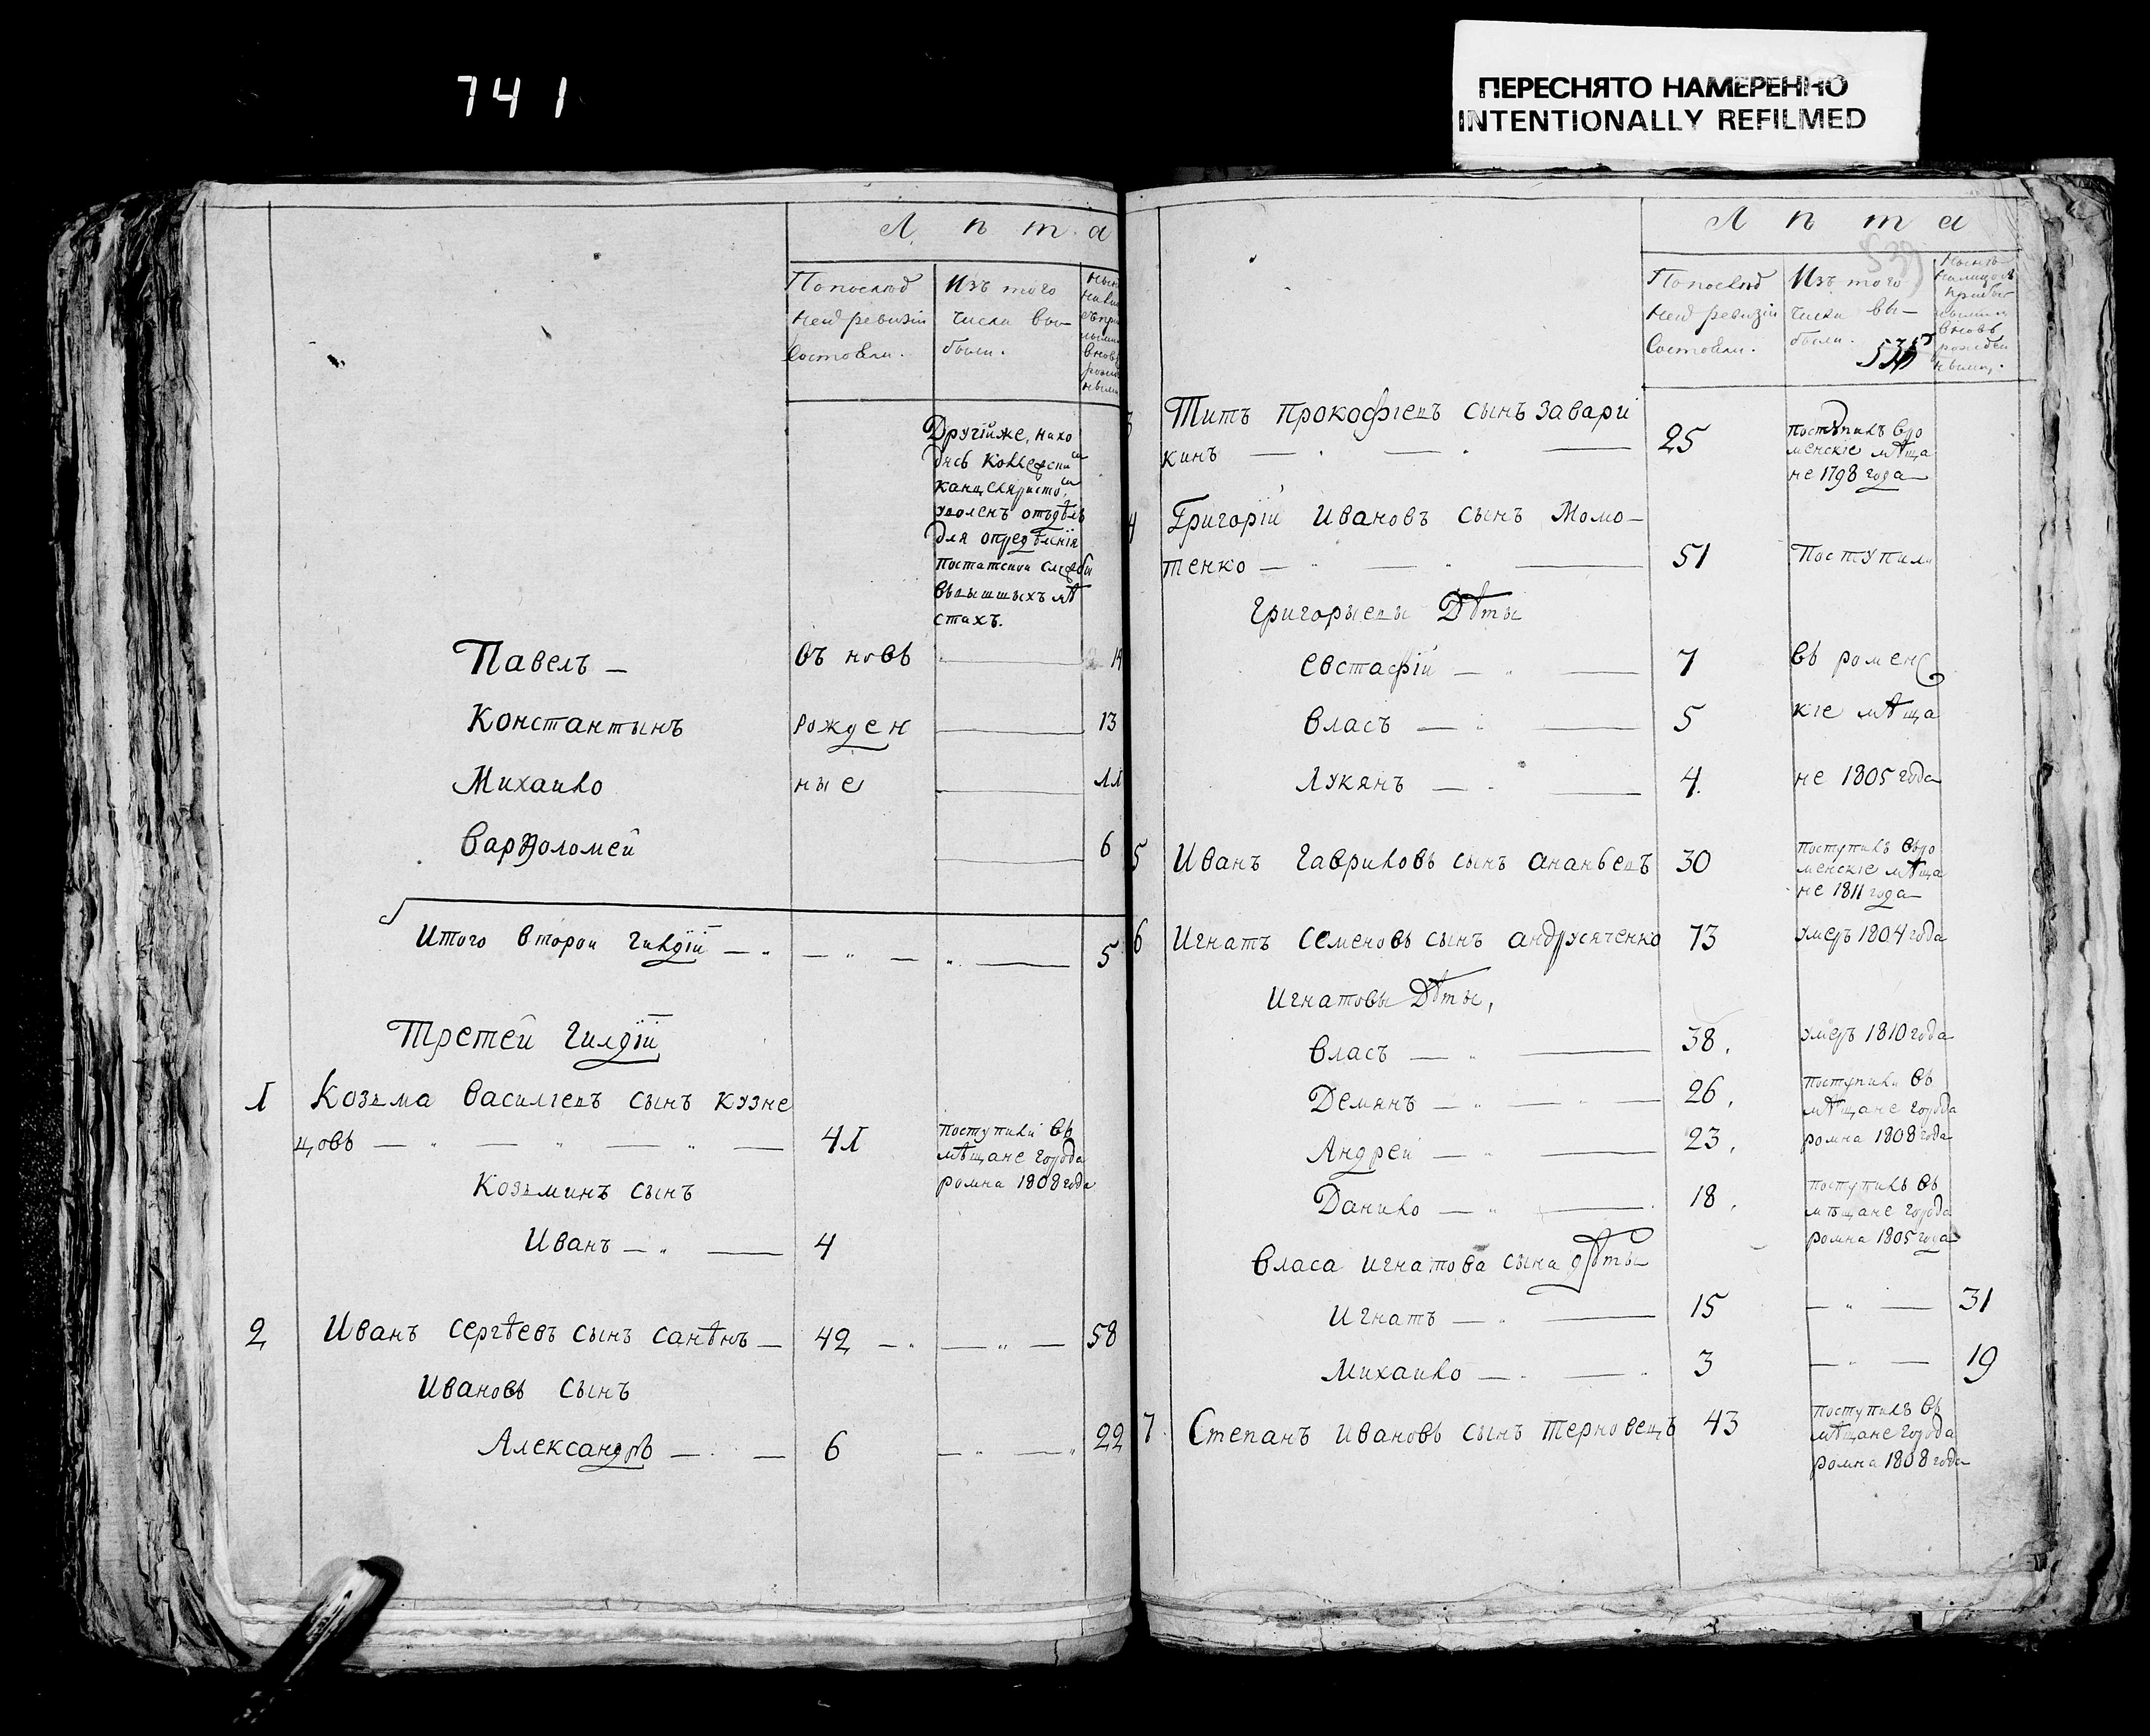 741
ПЕРЕСНЯТО НАМЕРЕННО
INTENTIONALLY REFILMED
Лѣта
По послѣд
ней ревизіи
состояли.
Изъ того
числа вы-
были.
Другій же, нахо
канцеляристо
уволенъ отъдѣлъ
для опредѣленія
въвышшыхъ мѣ
стахъ.
Павелъ — въ новь 14
Константынъ рожден 13
Михаило ные 11
Варфоломей 6
Итого второй гилдіи 5
Третей гилдіи
1 Козьма Василіевъ сынъ кузне
цовъ 41 поступили въ
мѣщане города
ромна 1808 года
Козьминъ сынъ
Иванъ 4
2 Иванъ Сергѣевъ сынъ Санѣнъ 42 58
Ивановъ сынъ
Александръ 6 22
Лѣта
По послѣд
ней ревизіи
состояли.
Изъ того
числа вы-
были.
Нынѣ
налицо съ
прибы
лыми и
вновь
рожден
ными.
3 Титъ Прокофіевъ сынъ Завари
кинъ 25 поступилъ въро
менскіе мѣща
не 1798 года
4 Григорій Ивановъ сынъ Момо-
тенко 51 Поступили
Григорьевы Дѣты
Евстафій 7 въ роменс
Власъ 5 кіе мѣща
Лукянъ 4. не 1805 года
5 Иванъ Гавриловъ сынъ Ананьевъ 30 поступилъ въро
менскіе мѣща
не 1811 года
6 Игнатъ Семеновъ сынъ Андрусяченко 73 умеръ 1804 года
Игнатовы Дѣты,
Власъ 38. умеръ 1810 года
Демянъ 26. поступили въ
мѣщане города
Андрей 23. ромна 1808 года
Данило 18. поступилъ въ
мѣщане города
ромна 1805 года
Власа Игнатова сына дѣты
Игнатъ 15 31
Михаило 3 19
7. Степанъ Ивановъ сынъ Терновецъ 43 поступилъ въ
мѣщане города
ромна 1808 года